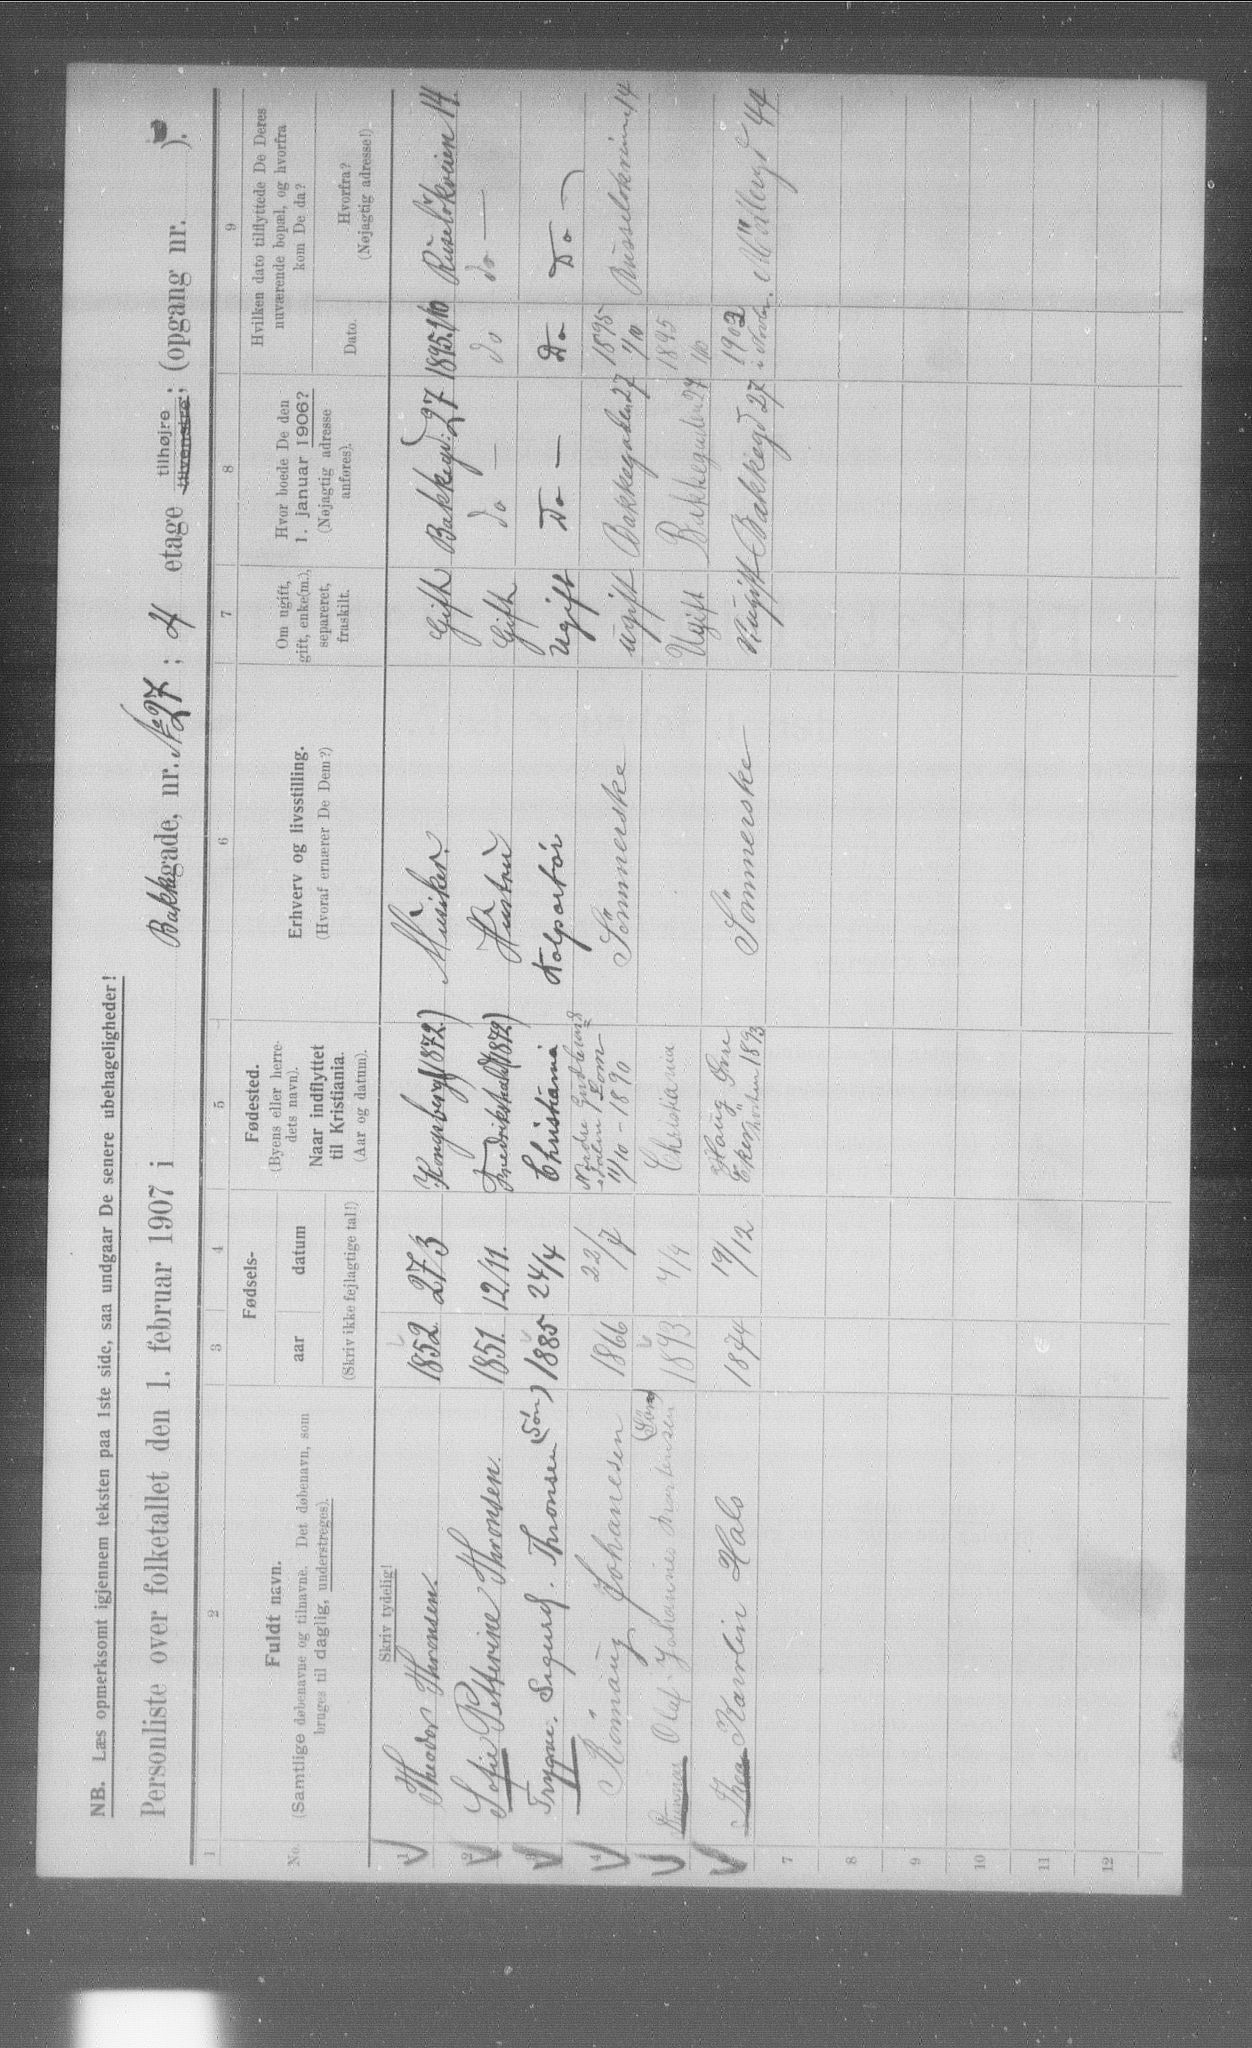 NB. Læs opmerksomt igjennem teksten paa 1ste side, saa undgaar De senere ubehageligheder!
Personliste over folketallet den 1. februar 1907 i Bakkegade, nr. No 27; 4 etage tilhøjre tilvenstre; (opgang nr. ).
1 2 3 4 5 6 7 8 9
No.
Fuldt navn.
(Samtlige døbenavne og tilnavne. Det døbenavn, som
bruges til daglig, understreges).
Skriv tydelig!
Fødsels-
aar datum
(Skriv ikke fejlagtige tal!)
Fødested.
(Byens eller herre-
dets navn).
Naar indflyttet
til Kristiania.
(Aar og datum).
Erhverv og livsstilling.
(Hvoraf ernærer De Dem?)
Om ugift,
gift, enke(m.),
separeret,
fraskilt.
Hvor boede De den
1. januar 1906?
(Nøjagtig adresse
anføres).
Hvilken dato tilflyttede De Deres
nuværende bopæl, og hvorfra
kom De da?
Dato.
Hvorfra?
(Nøjagtig adresse!)
1 Theodor Thronsen. 1852 27/3 Kongsberg (1872) Musiker. Gift Bakkegd: 27 1895 1/10 Ruseløkveien 14.
2 Sofie Petterine Thronsen. 1851. 12/11. Fredrikshald (1872) Hustru Gift do — do do —
3 Trygve. Sigurd. Thronsen (Søn) 1885 24/4 Christiania Kolportør Ugift Do — Do Do
4 Johanesen 1866 22/7 11/10 - 1890 Sömmerske ugift Bakkegaden 27 1895 1/10 14
5 Olaf Johannes (Søn) 1893 4/9 Christiania Ugift Bakkegaden 27 1895 1/10
6 Thea Karolin Hals 1874 19/12 Haug 1893 Sömmerske Bakkegd 27 1902 44
7
8
9
10
11
12